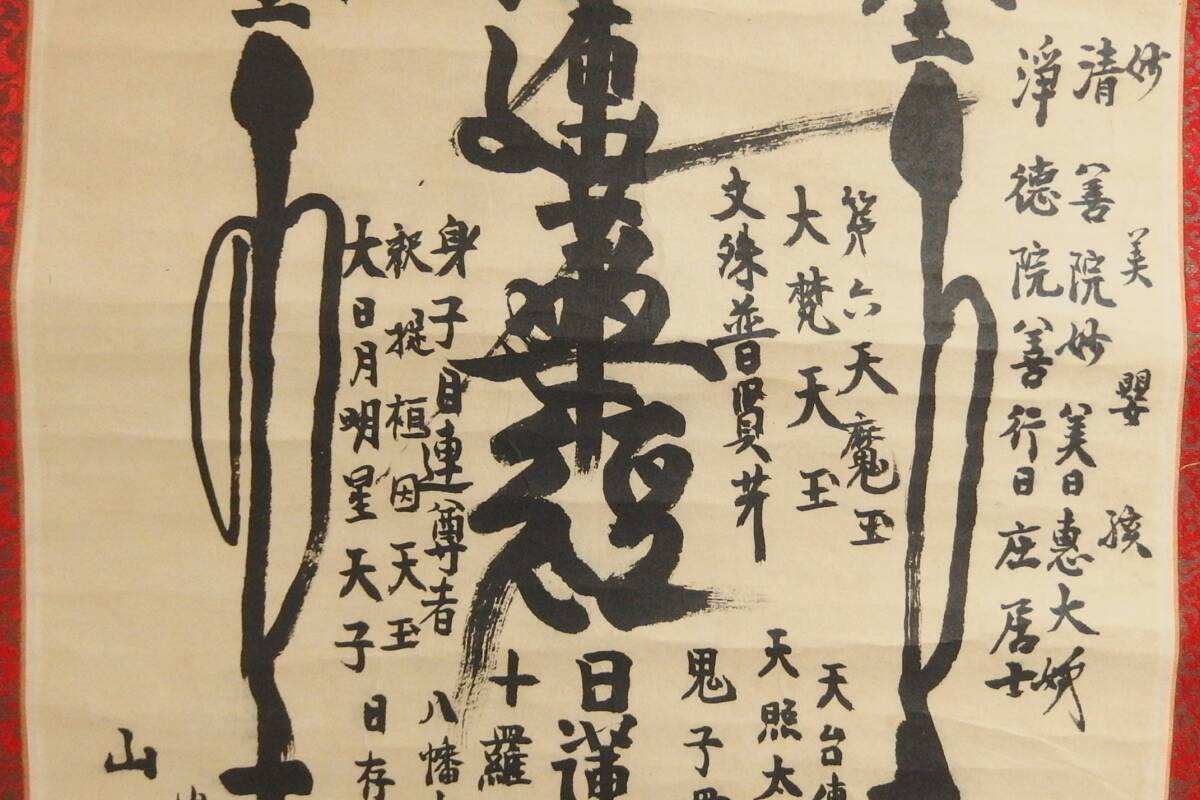 妙美嬰孩
清善院妙美日惠大姉
淨德院善行日庄居士
第六天魔王
大梵天王
文殊普賢䒑
天台
天照太
鬼子
蓮華經
日蓮
十羅
身子目連尊者
釈提桓因天王
大日月明星天子
八幡
日存
山